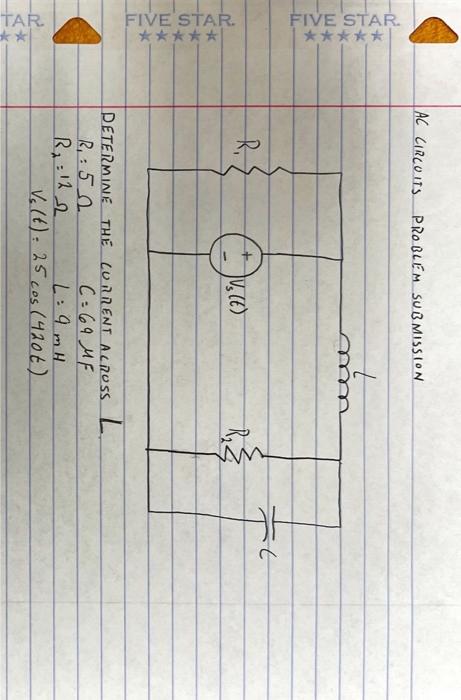 FIVE STAR.
FIVE STAR.
TAR.
AC CIRCUITS PROBLEM SUBMISSION
L
R₁
+
-
Vs(t)
R₂
C
DETERMINE THE CURRENT ACROSS L.
R₁ = 5 Ω C = 69 μF
R₂ = 12 Ω L = 9 mH
Vs(t) = 25 cos(420t)